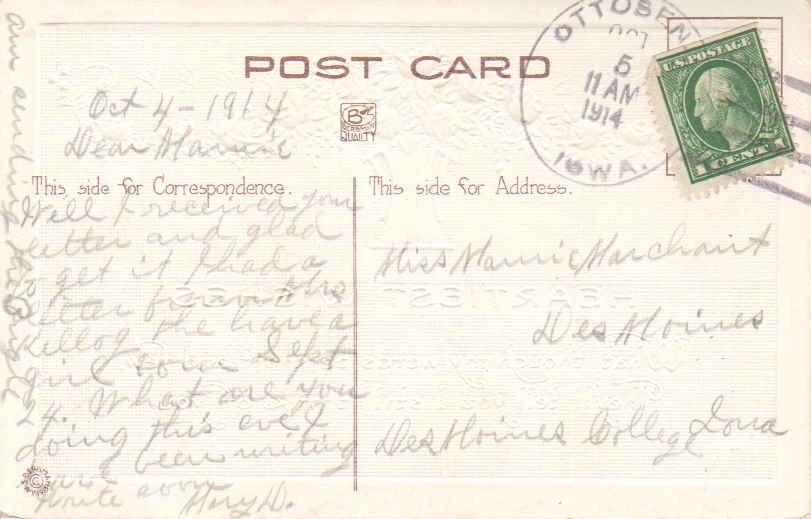 POST CARD
OTTOSEN
OCT
5
11 AM
1914
IOWA.
U.S. POSTAGE
1 CENT 1
B
QUALITY
This side for Correspondence.
This side for Address.
Oct 4-1914
Dear Mamie
Well I received your
letter and glad
to get it I had a
letter from Mrs
Kellog the have a
girl born Sept
24. What are you
doing this eve I
been writing
write soon
Mary D.
am sending the
Miss Mamie Marchant
Des Moines
Des Moines College Iowa
HEARTIEST WISHES